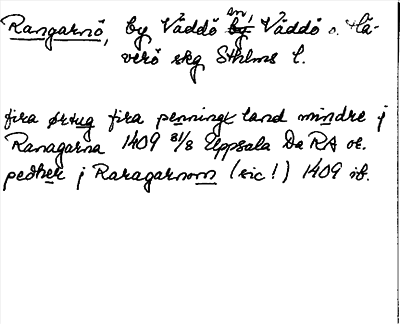 Rangarnö, by Väddö sn, Väddö o. Hä-
verö skg Sthlms l.
fira ørtug fira penningt land mindre j
Ranagarna 1409 31/8 Uppsala Da RA ok.
pedher j Raragarnom (sic!) 1409 ib.